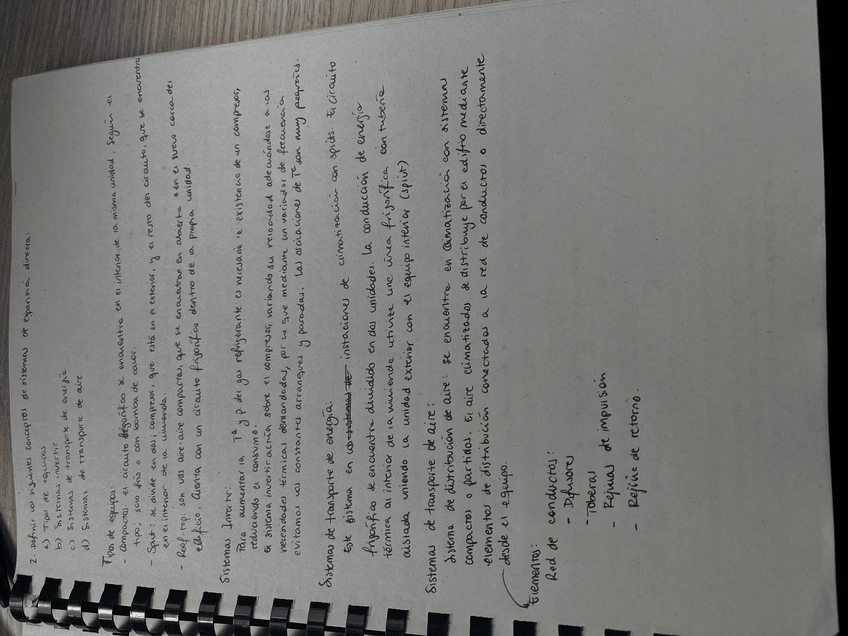 2. Definir los siguientes conceptos de sistemas de expansión directa.
a) Tipos de equipos
b) Sistemas invertir
c) Sistemas de transporte de energía
d) Sistemas de transporte de aire
Tipos de equipos
- Compactos: el circuito frigorífico se encuentra en el interior de la misma unidad. Según el
tipo, solo frío o con bomba de calor.
- Split: se divide en dos; compresor, que está en el exterior, y el resto del circuito, que se encuentra
en el interior de la vivienda.
- Roof-top: son uds aire-aire compactas, que se encuentran en abierta o en el suelo cerca del
edificio. Cuenta con un circuito frigorífico dentro de la propia unidad
Sistemas Inverter:
Para aumentar la Tª y P del gas refrigerante es necesaria la existencia de un compresor,
reduciendo el consumo.
El sistema invertir actúa sobre el compresor, variando su velocidad adecuándose a las
necesidades térmicas demandadas, por lo que mediante un variador de frecuencia
evitamos los constantes arranques y paradas. Las oscilaciones de Tª son muy pequeñas.
Sistemas de transporte de energía:
Este sistema en instalaciones de climatización con splits. El circuito
frigorífico se encuentra dividido en dos unidades. La conducción de energía
térmica al interior de la vivienda utiliza una línea frigorífica con tubería
aislada uniendo la unidad exterior con el equipo interior (split)
Sistemas de transporte de aire:
Sistema de distribución de aire: se encuentra en climatización con sistemas
compactos o partidos. El aire climatizado se distribuye por el edificio mediante
elementos de distribución conectados a la red de conductos o directamente
desde el equipo.
Elementos:
Red de conductos:
- Difusores
- Toberas
- Rejillas de impulsión
- Rejilla de retorno.